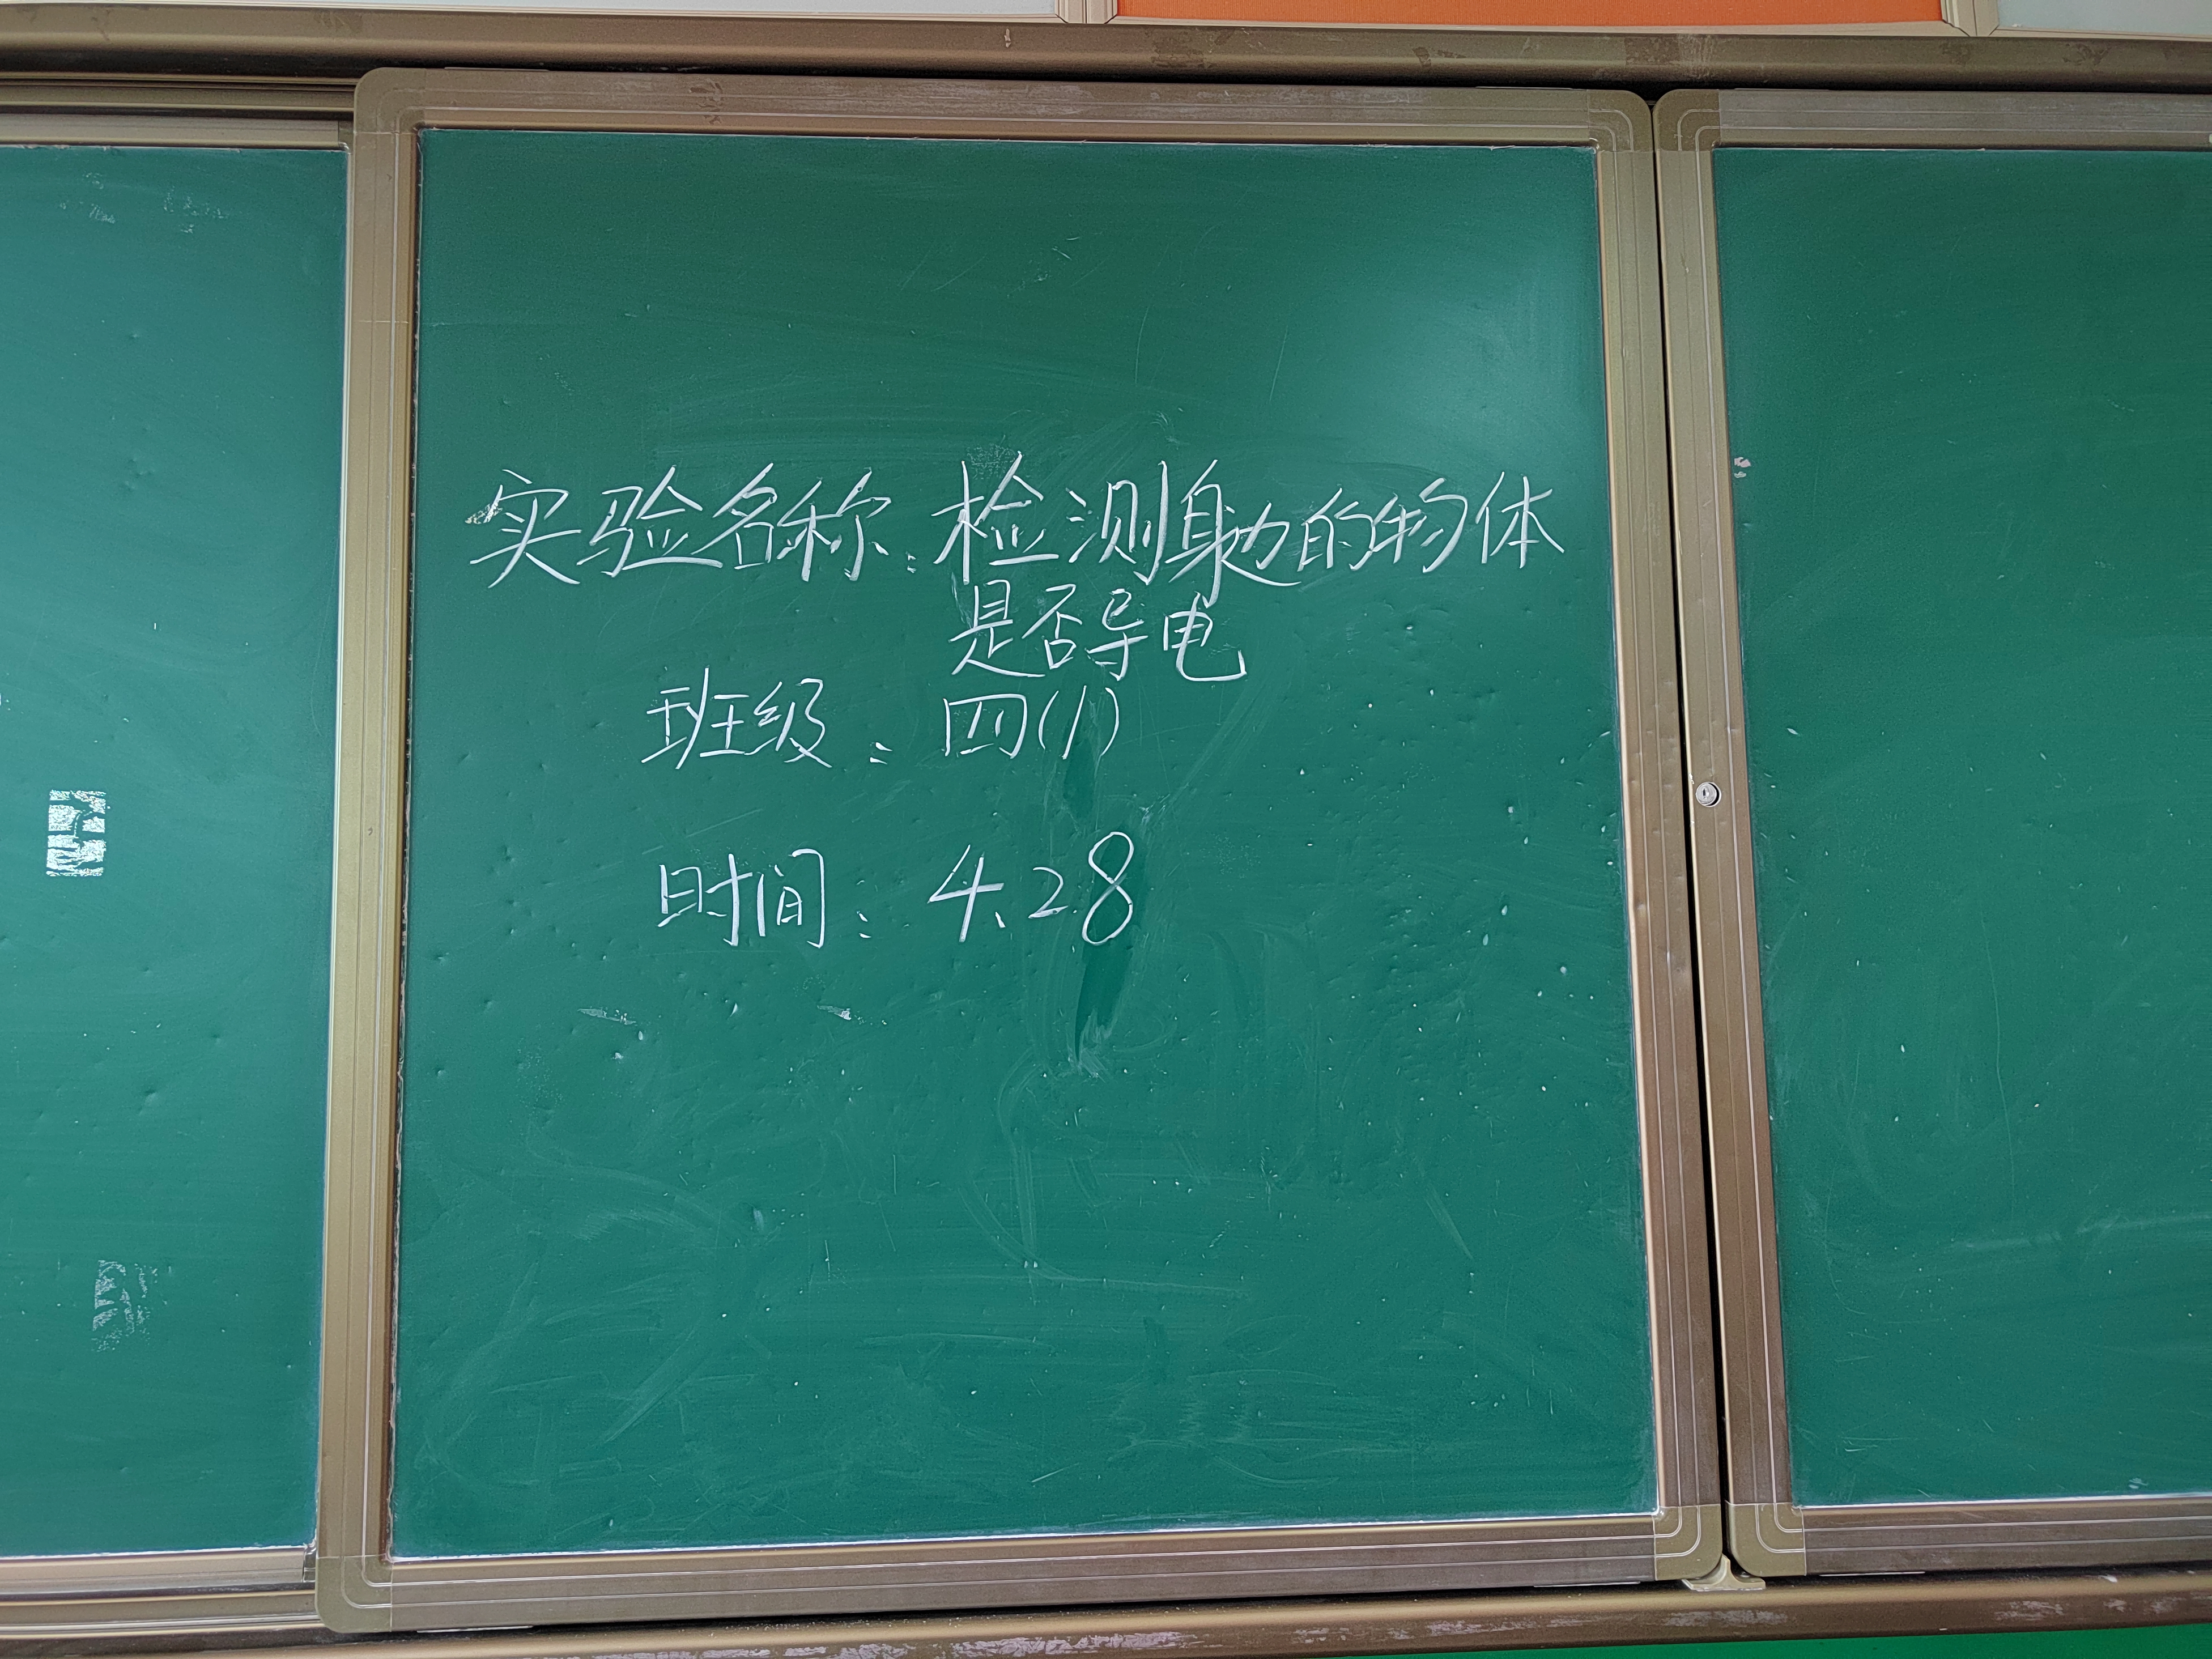 实验名称:检测身边的物体
是否导电
班级:四(1)
时间:4.28